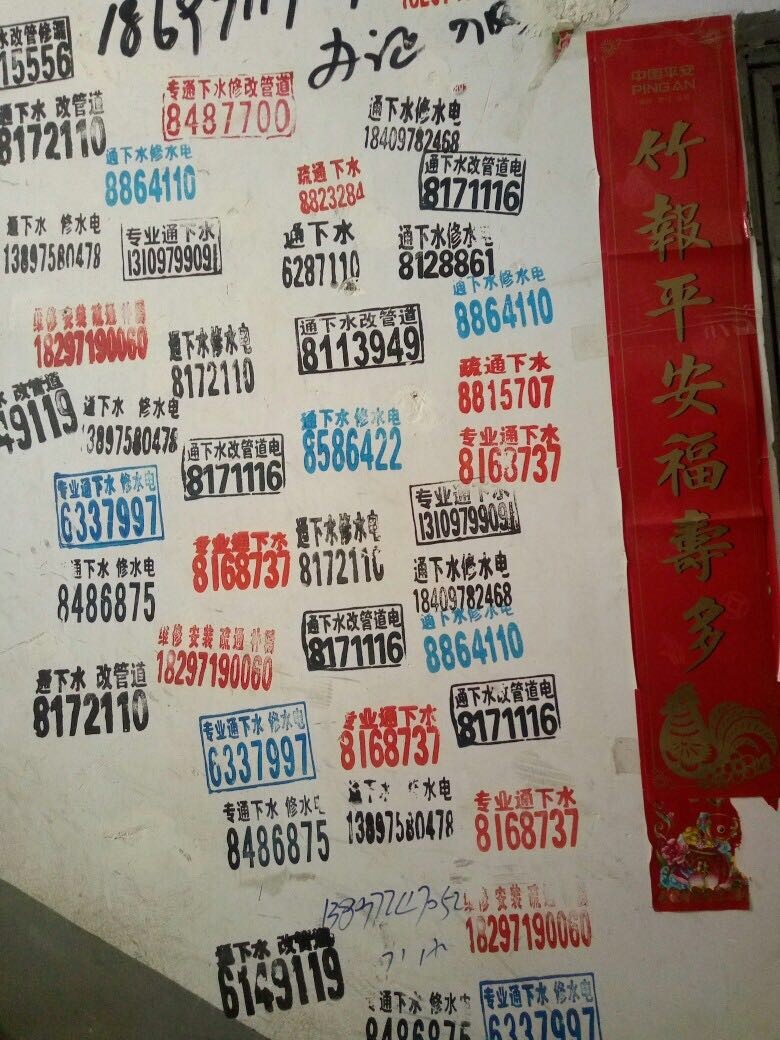 水改管修漏
15556
办证 刀
专通下水修改管道
8487700
通下水 改管道
8172110
通下水修水电
18409782468
通下水修水电
8864110
疏通下水
8823284
通下水改管道电
8171116
通下水 修水电
13897580478
专业通下水
13109799091
通下水
6287110
通下水修水电
8128861
通下水修水电
8864110
维修 安装 疏通 补漏
18297190060
通下水修水电
8172110
通下水改管道
8113949
疏通下水
8815707
水 改管道
49119
通下水 修水电
13897580478
通下水改管道电
8171116
通下水 修水电
8586422
专业通下水
8168737
专业通下水 修水电
6337997
专业通下水
8168737
通下水修水电
8172110
专业通下水
13109799091
通下水 修水电
8486875
通下水修水电
18409782468
维修 安装 疏通 补漏
18297190060
通下水改管道电
8171116
通下水修水电
8864110
通下水 改管道
8172110
专业通下水 修水电
6337997
专业通下水
8168737
通下水改管道电
8171116
专通下水 修水电
8486875
通下水 修水电
13897580478
专业通下水
8168737
维修 安装 疏通 补漏
18297190060
通下水 改管道
6149119
专通下水 修水电
8486875
专业通下水 修水电
6337997
中国平安
PING AN
竹報平安福壽多